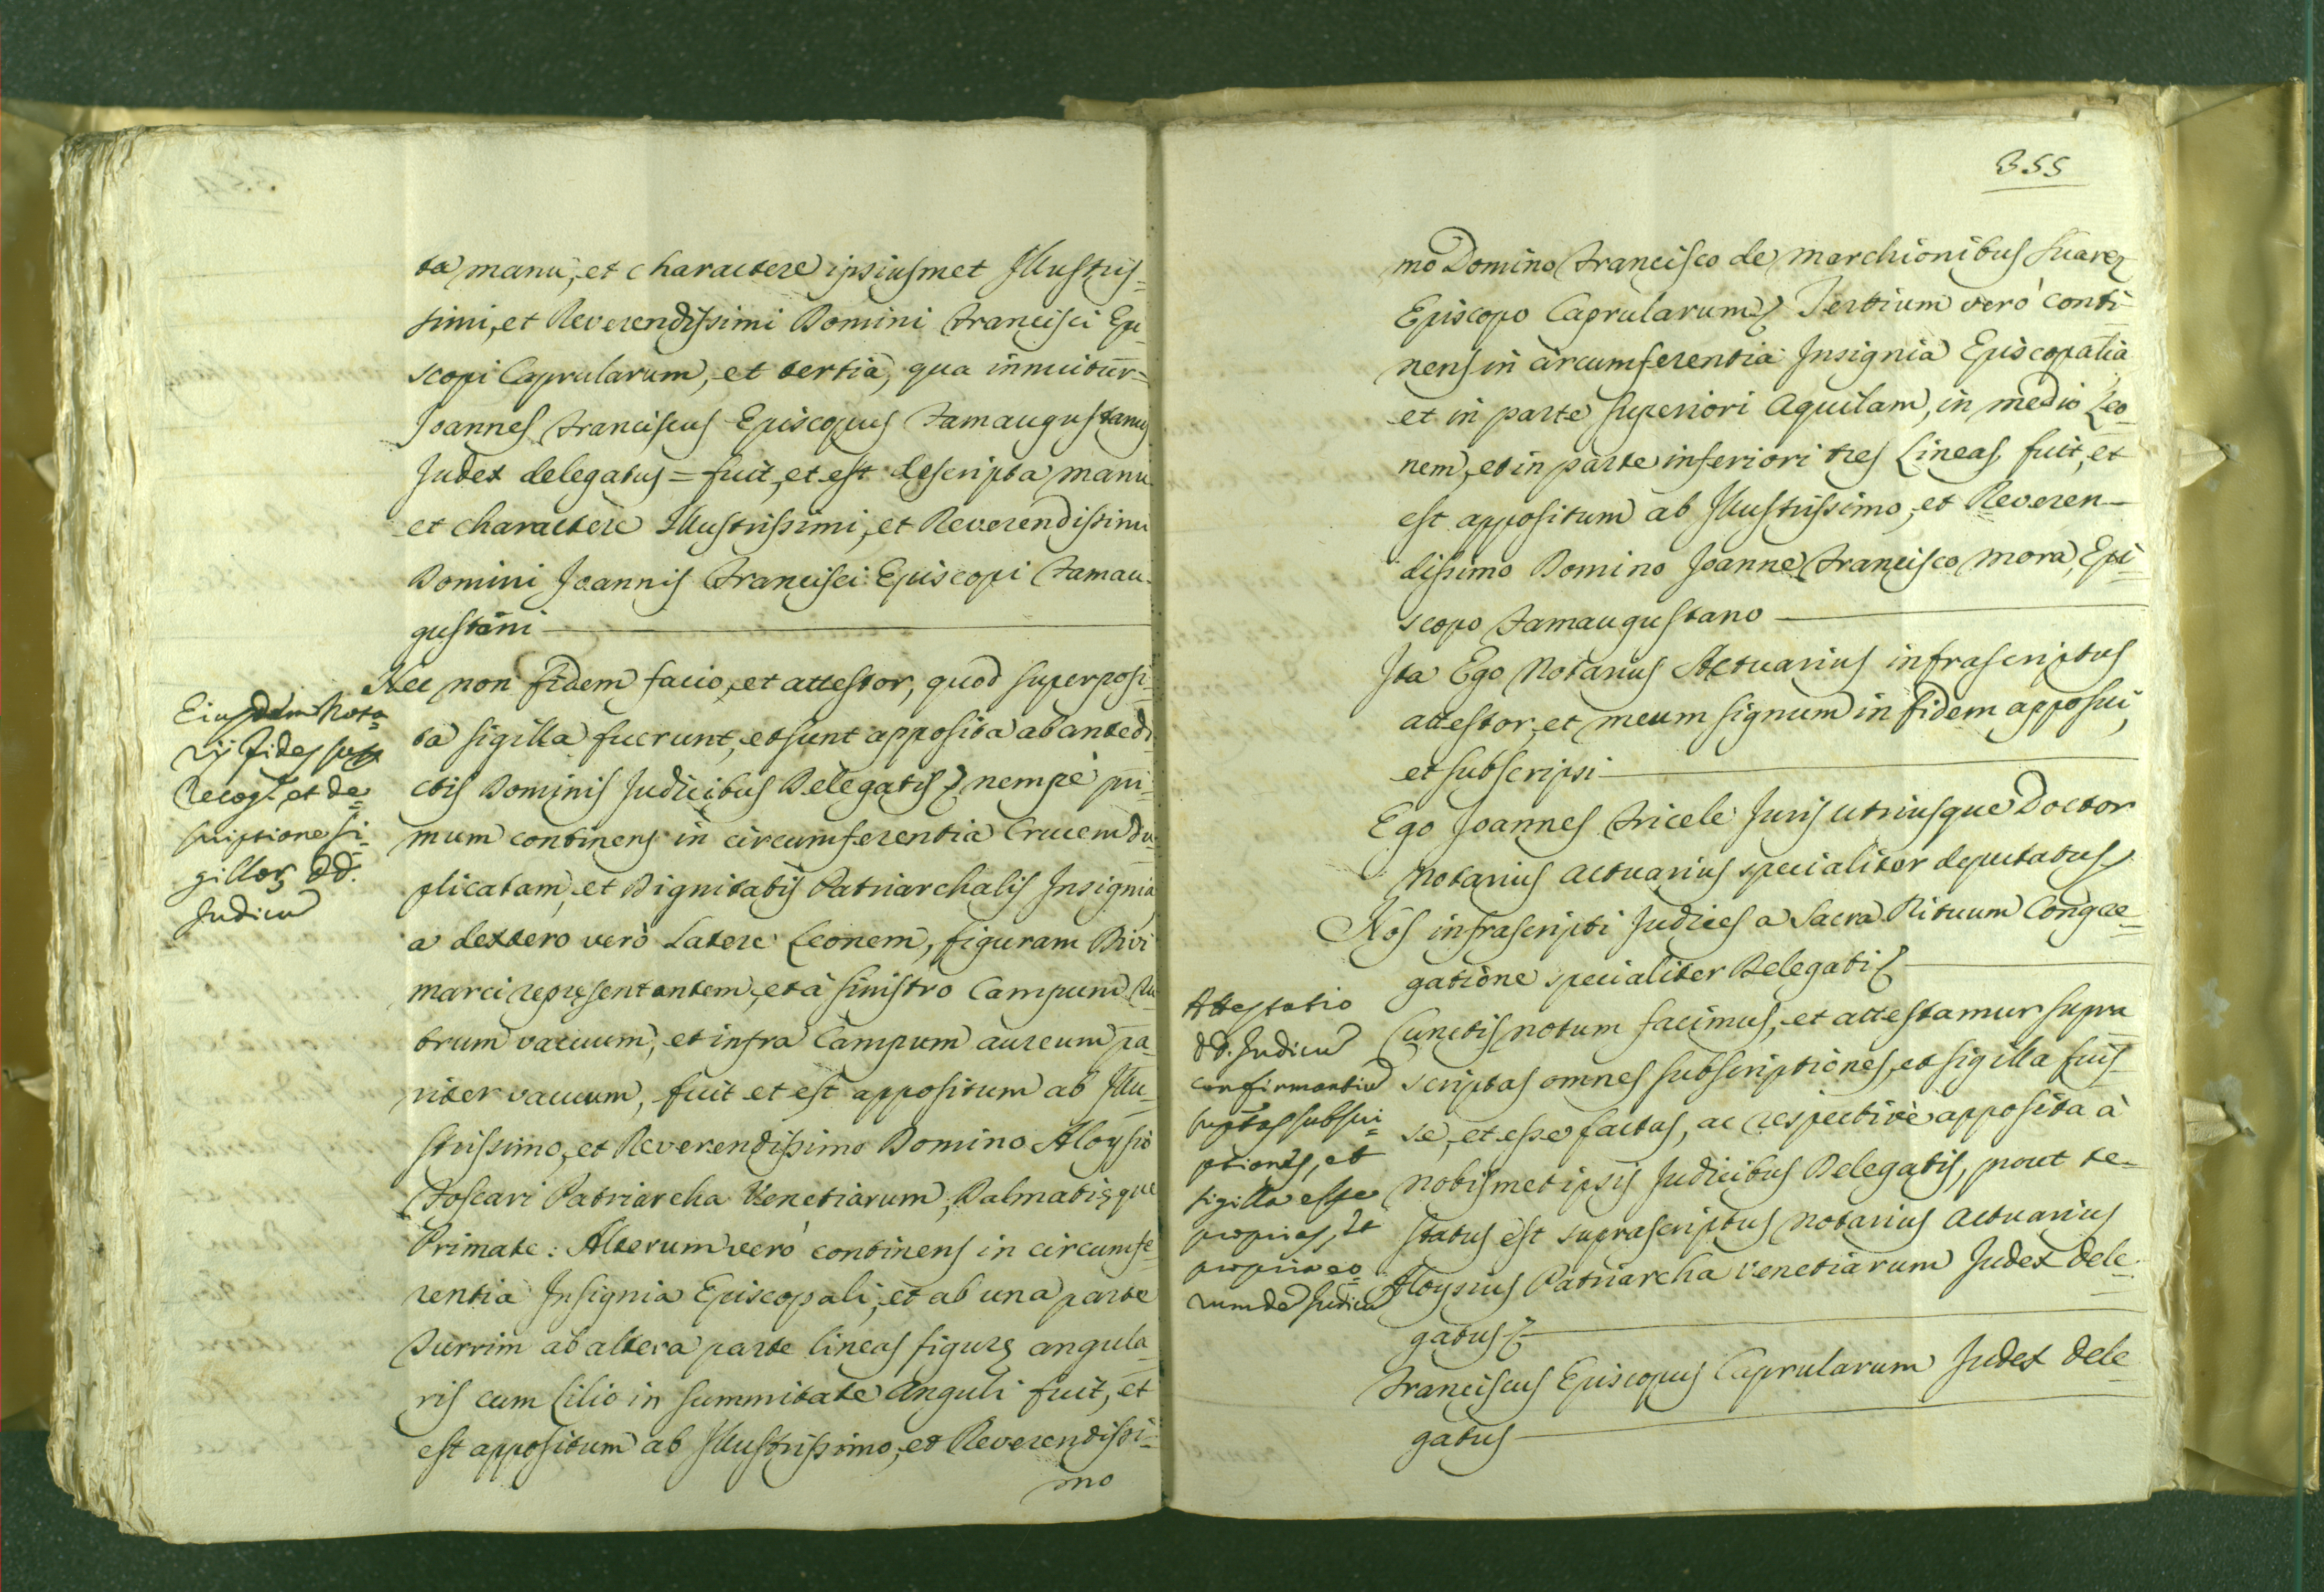 ta manu, et charactere ipsiusmet Illustris=
simi, et Reverendissimi Domini Francisci Epi
scopi Caprularum, et tertia, qua innuitur=
Joannes Franciscus Episcopus Famaugustanus
Judex delegatus = fuit, et est descripta manu
et charactere Illustrissimi, et Reverendissimi
Domini Joannis Francisci Episcopi Famau-
gustani
Nec non fidem facio, et attestor, quod superposi=
ta sigilla fuerunt, et sunt apposita ab antedi
ctis Dominis Judicibus Delegatis, nempè pri=
mum continens in circumferentia Crucem du
plicatam, et Dignitatis Patriarchalis Insignia
a dextero verò Latere Leonem, figuram Divi
Marci representantem, et à sinistro Campum Ru
brum vacuum, et infra Campum aureum pa
riter vacuum, fuit et est appositum ab Illu
strissimo, et Reverendissimo Domino Aloysio
Foscari Patriarcha Venetiarum, Dalmatięque
Primate: Alterum verò continens in circumfe=
rentia Insignia Episcopali, et ab una parte
Turrim ab altera parte lineas figurę angula
ris cum Lilio in summitate Anguli fuit, et
est appositum ab Illustrissimo, et Reverendissi=
mo
Eiusdem Nota
rij fides
Recog.e et de=
scriptione si=
gillor, DD.
Judicu
355
mo Domino Francisco de Marchionibus Suarez
Episcopo Caprularum, Tertium verò conti
nens in circumferentia Insignia Episcopalia
et in parte superiori Aquilam, in medio Leo
nem, et in parte inferiori tres Lineas, fuit, et
est appositum ab Illustrissimo, et Reveren-
dissimo Domino Joanne Francisco Mora, Epi=
scopo Famaugustano
Ita Ego Notarius Actuarius infrascriptus
attestor, et meum signum in fidem apposui,
et subscripsi
Ego Joannes Fricele Juris utriusque Doctor
Notarius actuarius specialiter deputatus
Nos infrascripti Judices a Sacra Rituum Congre=
gatione specialiter Delegati
Cunctis notum facimus, et attestamur supra
scriptas omnes subscriptiones, et sigilla fuis
se, et esse factas, ac respectivè apposita à
nobismet ipsis Judicibus Delegatis, prout te=
status est suprascriptus Notarius Actuarius
Aloysius Patriarcha Venetiarum Judex dele=
gatus
Franciscus Episcopus Caprularum Judex dele
gatus
Attestatio
dd. Judicu
confirmantiu
sup.tas subscri=
ptiones, et
sigilla esse
proprias, et
propria eo=
rumde Judicu